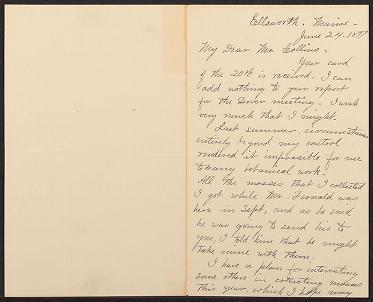 Ellsworth. Maine -
June 24. 1897
My Dear Mr. Collins -
Your card
of the 20th is received. I can
add nothing to your report
for the Dover meeting - I wish
very much that I might.
Last summer, circumstances
entirely beyond my control
rendered it impossible for me
to any botanical work -
All the mosses that I collected
I got while Mr. Fernald was
here in Sept, and as he said
he was going to send his to
you, I told him that he might
take mine with them.
I have a plan for interesting
some others in collecting mosses
this year, which I hope may